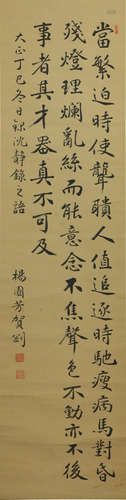 當繁迫時使聾瞶人值追逐時馳瘦病馬對昏
殘燈理爛亂絲而能意念不焦聲色不動亦不後
事者其才器真不可及
大正丁巳冬日録沈靜錄之語
楊圃芳賀剛